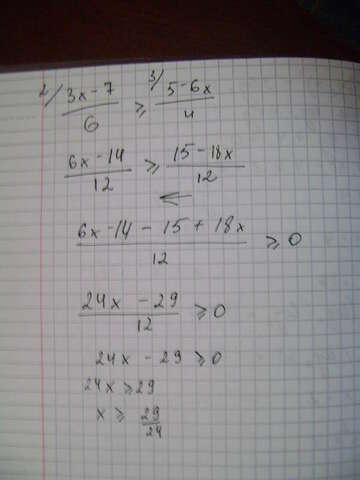 2/ 3x-7/6 ≥ 3/ 5-6x/4
6x-14/12 ≥ 15-18x/12
⇐
6x-14-15+18x/12 ≥ 0
24x-29/12 ≥ 0
24x-29 ≥ 0
24x ≥ 29
x ≥ 29/24